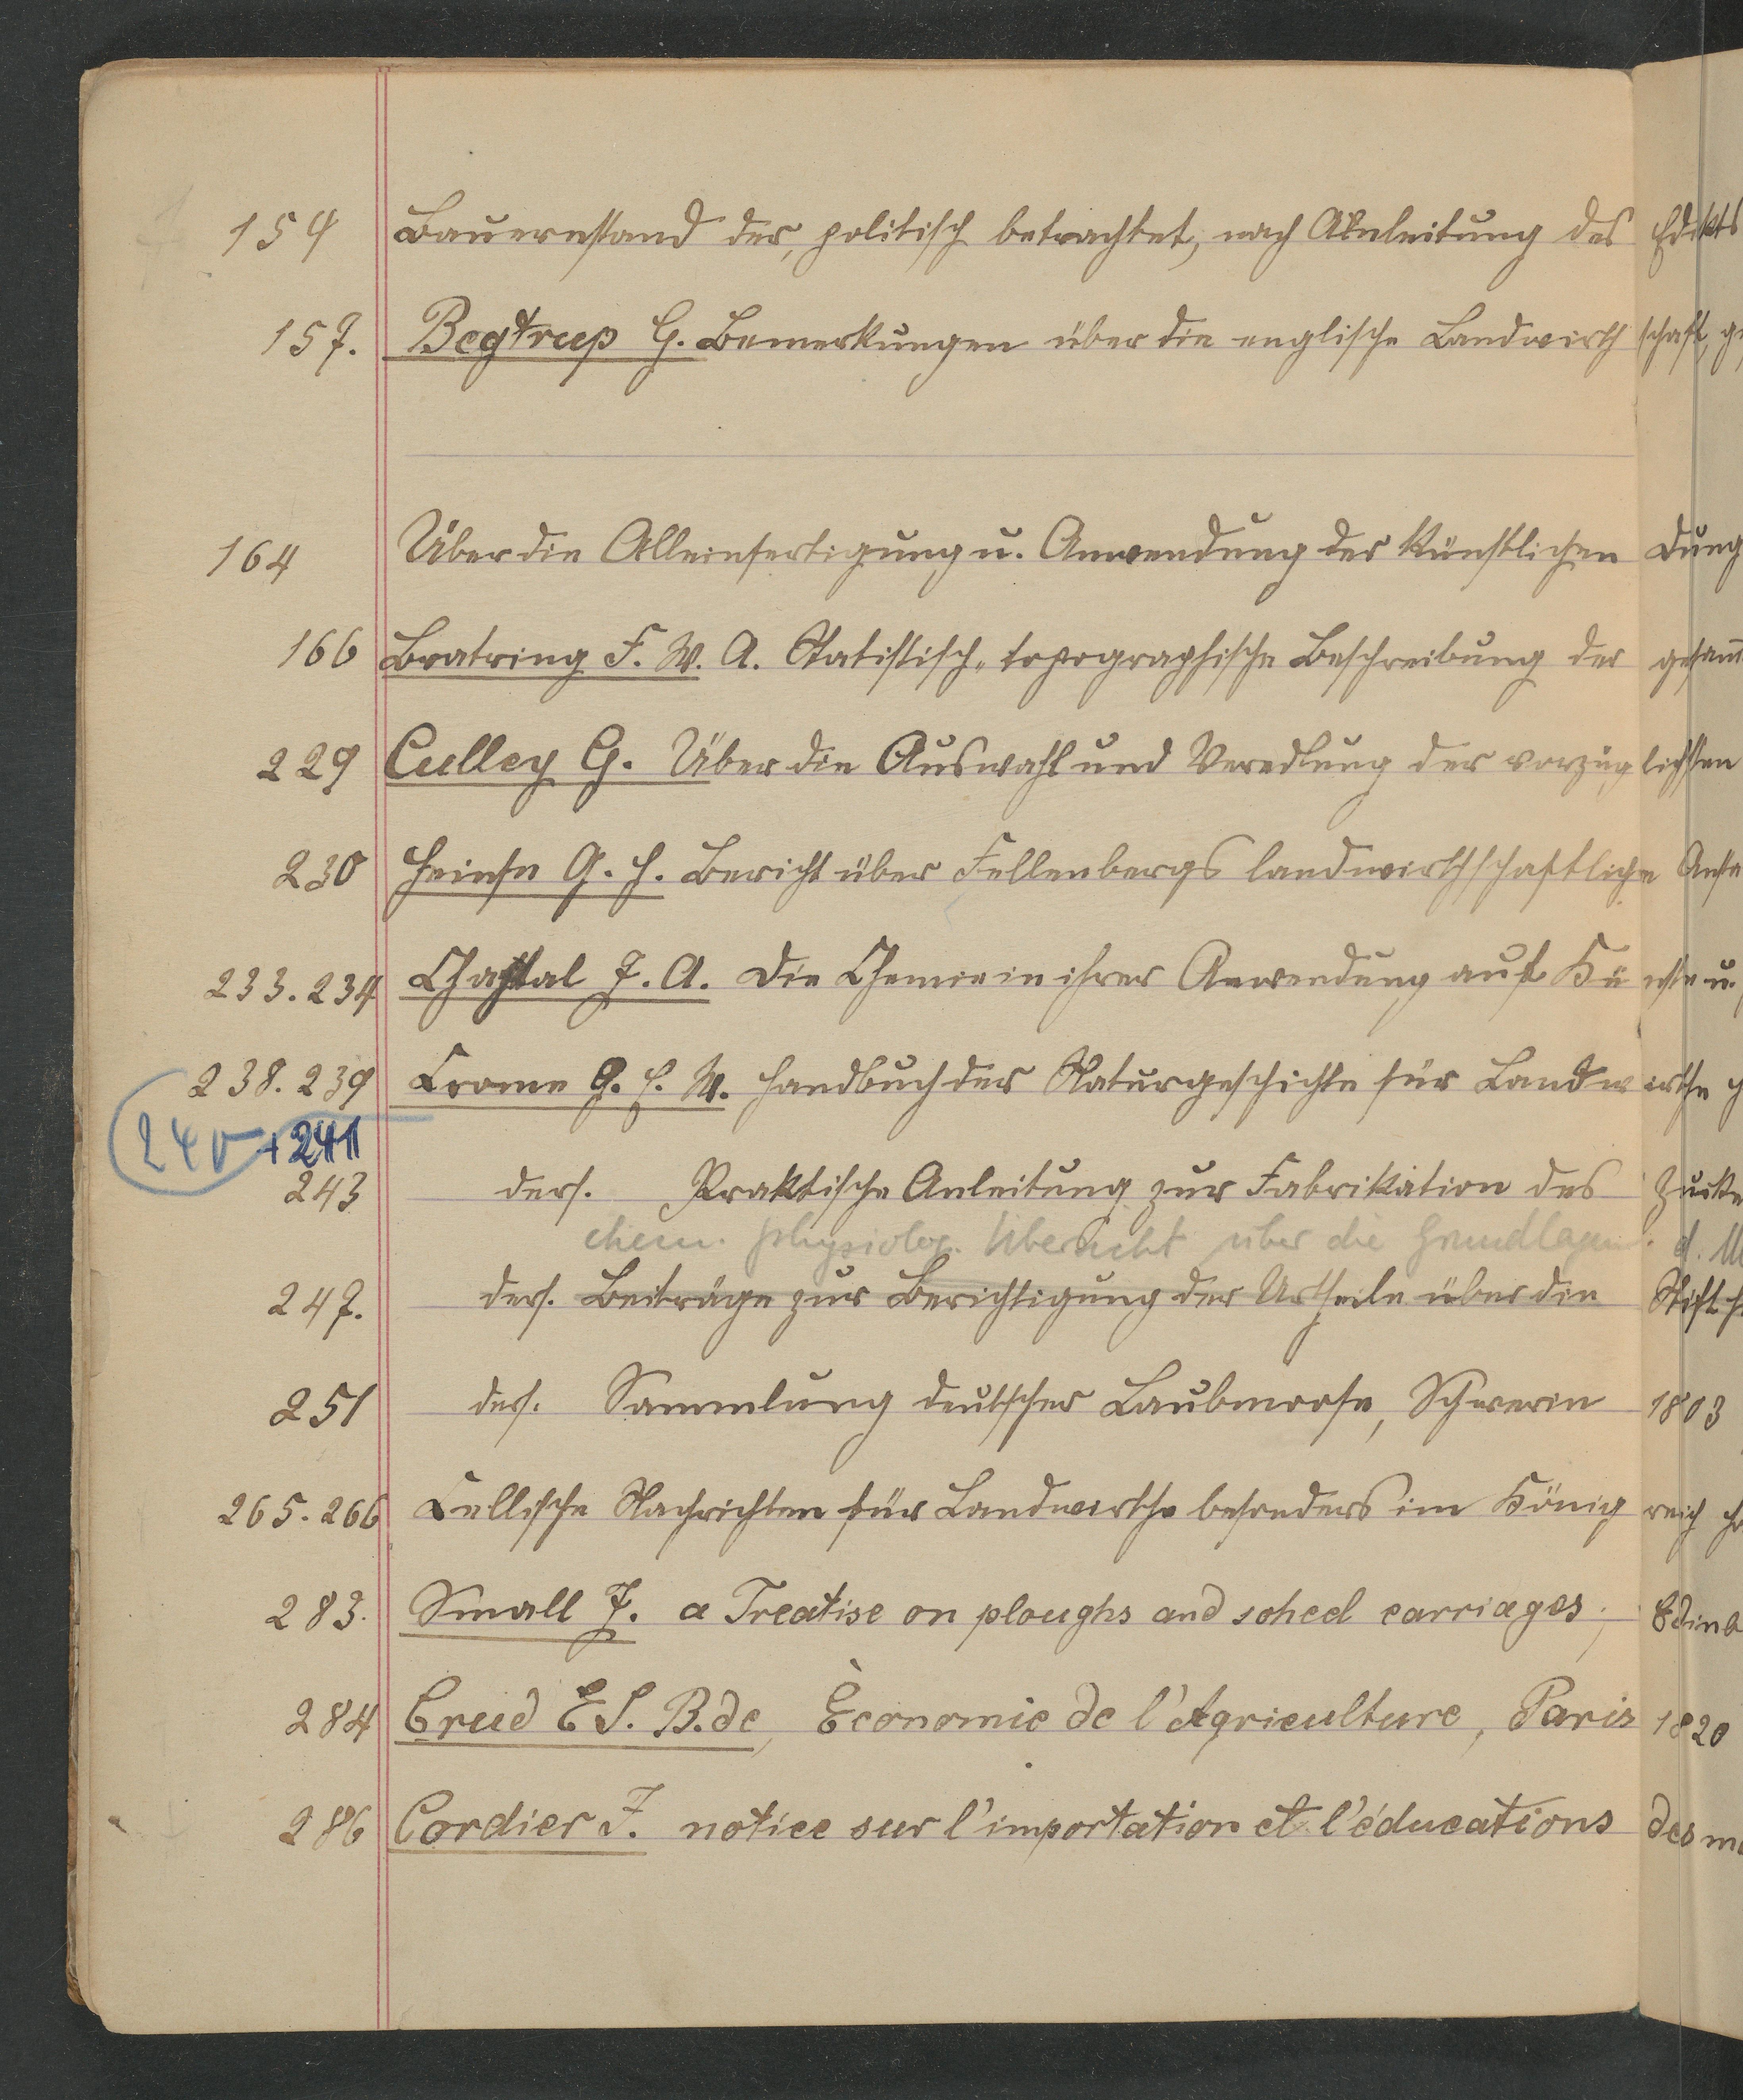 154 Bauernstand der, politisch betrachtet, nach Anleitung des Edikts
157. Begtrup G. Bemerkungen über die englische Landwirthschaft, ge
164 Über die Alleinfertigung u. Anwendung der künstlichen Dung
166 Bratring F. W. A. Statistisch-topographische Beschreibung der gesamm
229 Culley G. Über die Auswahl und Veredlung der vorzüglichsten
230 Heinse G. H. Bericht über Fellenbergs landwirthschaftliche Ansta
233. 234 Chaptal J. A. Die Chemie in ihrer Anwendung auf Künste u.
238. 239 Crome G. E. W. Handbuch der Naturgeschichte für Landwirthe
240 + 241
243 ders. Praktische Anleitung zur Fabrikation des Zucke
chem. physiolog. Übersicht über die Grundlagen d.
247. ders. Beiträge zur Berichtigung der Urtheile über die
251 ders. Sammlung deutscher Laubmoose, Schwerin 1803
265. 266 Cellische Nachrichten für Landwirthe besonders im Königreich
283. Small J. a Treatise on ploughs and soheel carriages, Edinb
284 Crud E S. B. de, Èconomie de l'Agriculture, Paris 1820
286 Cordier J. notice sur l'importation et l'éducations des